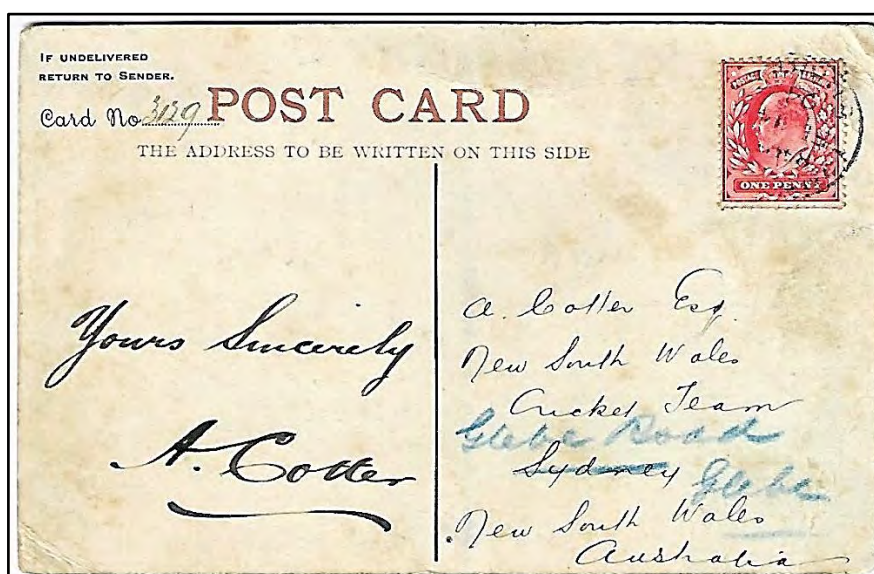 IF UNDELIVERED
RETURN TO SENDER.
Card No 3129
POST CARD
THE ADDRESS TO BE WRITTEN ON THIS SIDE
POSTAGE
ONE PENNY
Yours Sincerely
A. Cotter
A. Cotter Esq.
New South Wales
Cricket Team
Glebe Road
Sydney Glebe
New South Wales
Australia